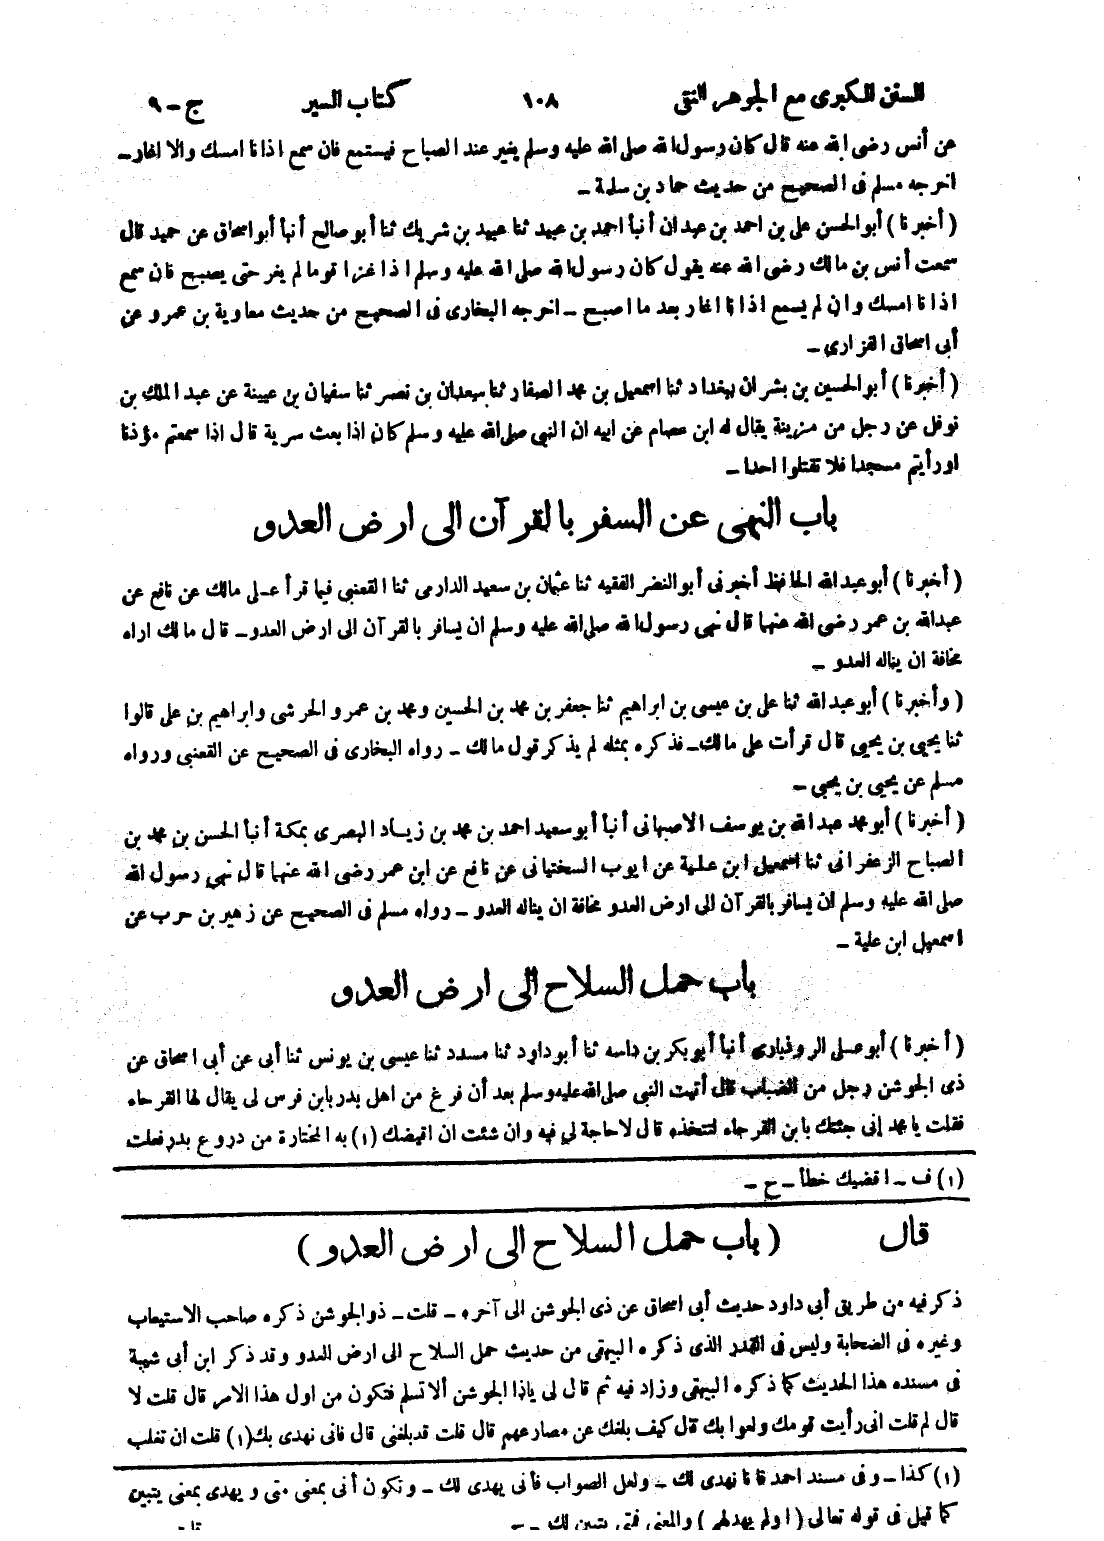 السنن الكبرى مع الجوهر النقى ١٠٨ كتاب السير ج - ٩
عن أنس رضى الله عنه قال كان رسول الله صلى الله عليه وسلم يغير عند الصباح فيستمع فان سمع اذانا امسك والا اغار -
اخرجه مسلم فى الصحيح من حديث حماد بن سلمة -
( أخبرنا ) أبو الحسن على بن احمد بن عبدان أنبأ احمد بن عبيد ثنا عبيد بن شريك ثنا أبو صالح أنبأ أبو اسحاق عن حميد قال
سمعت أنس بن مالك رضى الله عنه يقول كان رسول الله صلى الله عليه وسلم اذا غزا قوما لم يغر حتى يصبح فان سمع
اذانا امسك وان لم يسمع اذانا اغار بعد ما اصبح - اخرجه البخارى فى الصحيح من حديث معاوية بن عمرو عن
أبى اسحاق الفزارى -
( أخبرنا ) أبو الحسين بن بشران ببغداد ثنا اسمعيل بن محمد الصفار ثنا سعدان بن نصر ثنا سفيان بن عيينة عن عبد الملك بن
نوفل عن رجل من مزينة يقال له ابن عصام عن ابيه ان النبى صلى الله عليه وسلم كان اذا بعث سرية قال اذا سمعتم مؤذنا
اورأيتم مسجدا فلا تقتلوا احدا -
باب النهى عن السفر بالقرآن الى ارض العدو
( أخبرنا ) أبو عبد الله الحافظ أخبرنى أبو النضر الفقيه ثنا عثمان بن سعيد الدارمى ثنا القعنبى فيما قرأ على مالك عن نافع عن
عبدالله بن عمر رضى الله عنهما قال نهى رسول الله صلى الله عليه وسلم ان يسافر بالقرآن الى ارض العدو - قال مالك اراه
مخافة ان يناله العدو -
( وأخبرنا ) أبو عبد الله ثنا على بن عيسى بن ابراهيم ثنا جعفر بن محمد بن الحسين ومحمد بن عمرو الحرشى وابراهيم بن على قالوا
ثنا يحيى بن يحيى قال قرأت على مالك - فذكره بمثله لم يذكر قول مالك - رواه البخارى فى الصحيح عن القعنبى ورواه
مسلم عن يحيى بن يحيى -
( أخبرنا ) أبو محمد عبد الله بن يوسف الاصبهانى أنبأ أبو سعيد احمد بن محمد بن زياد البصرى بمكة أنبأ الحسن بن محمد بن
الصباح الزعفرانى ثنا اسمعيل ابن علية عن ايوب السختيانى عن نافع عن ابن عمر رضى الله عنهما قال نهى رسول الله
صلى الله عليه وسلم ان يسافر بالقرآن الى ارض العدو مخافة ان يناله العدو - رواه مسلم فى الصحيح عن زهير بن حرب عن
اسمعيل ابن علية -
باب حمل السلاح الى ارض العدو
( أخبرنا ) أبو على الروذبارى أنبأ أبو بكر بن داسه ثنا أبو داود ثنا مسدد ثنا عيسى بن يونس ثنا أبى عن أبى اسحاق عن
ذى الجوشن رجل من الضباب قال أتيت النبى صلى الله عليه وسلم بعد أن فرغ من اهل بدر بابن فرس لى يقال لها القرحاء
فقلت يا محمد إنى جئتك بابن القرحاء لتتخذه قال لا حاجة لى فيه وان شئت ان اقيضك (١) به المختارة من دروع بدر فعلت
(١) ف - اقضيك خطأ - ح -
قال ( باب حمل السلاح الى ارض العدو )
ذكر فيه من طريق أبى داود حديث أبى اسحاق عن ذى الجوشن الى آخره - قلت - ذو الجوشن ذكره صاحب الاستيعاب
وغيره فى الصحابة وليس فى القدر الذى ذكره البيهقى من حديث حمل السلاح الى ارض العدو وقد ذكر ابن أبى شيبة
فى مسنده هذا الحديث كما ذكره البيهقى وزاد فيه ثم قال لى ياذا الجوشن ألا تسلم فتكون من اول هذا الامر قال قلت لا
قال لم قلت انى رأيت قومك ولعوا بك قال كيف بلغك عن مصارعهم قال قلت قد بلغنى قال فانى نهدى بك (١) قلت ان تغلب
(١) كذا - وفى مسند احمد فانا نهدى لك - ولعل الصواب فأنى يهدى لك - وتكون أنى بمعنى متى ويهدى بمعنى يتبين
كما قيل فى قوله تعالى ( اولم يهد لهم ) والمعنى فمتى يتبين لك - ح -